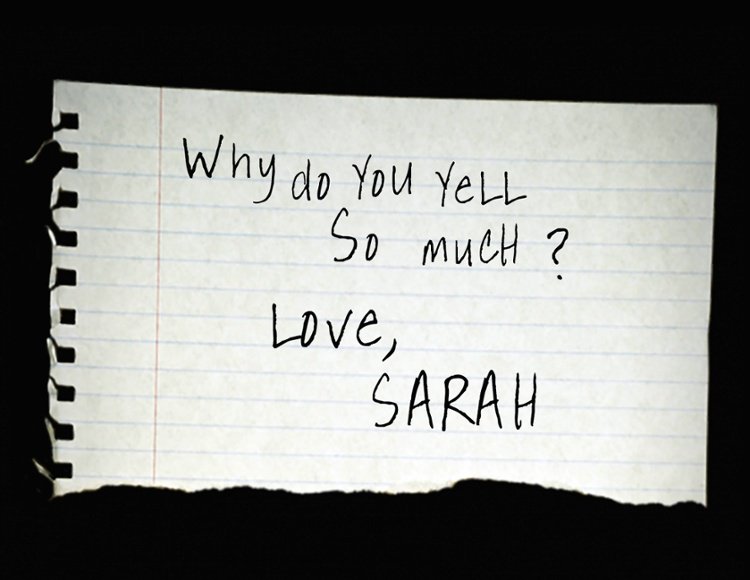 Why do You YeLL
So mucH ?
Love,
SARAH